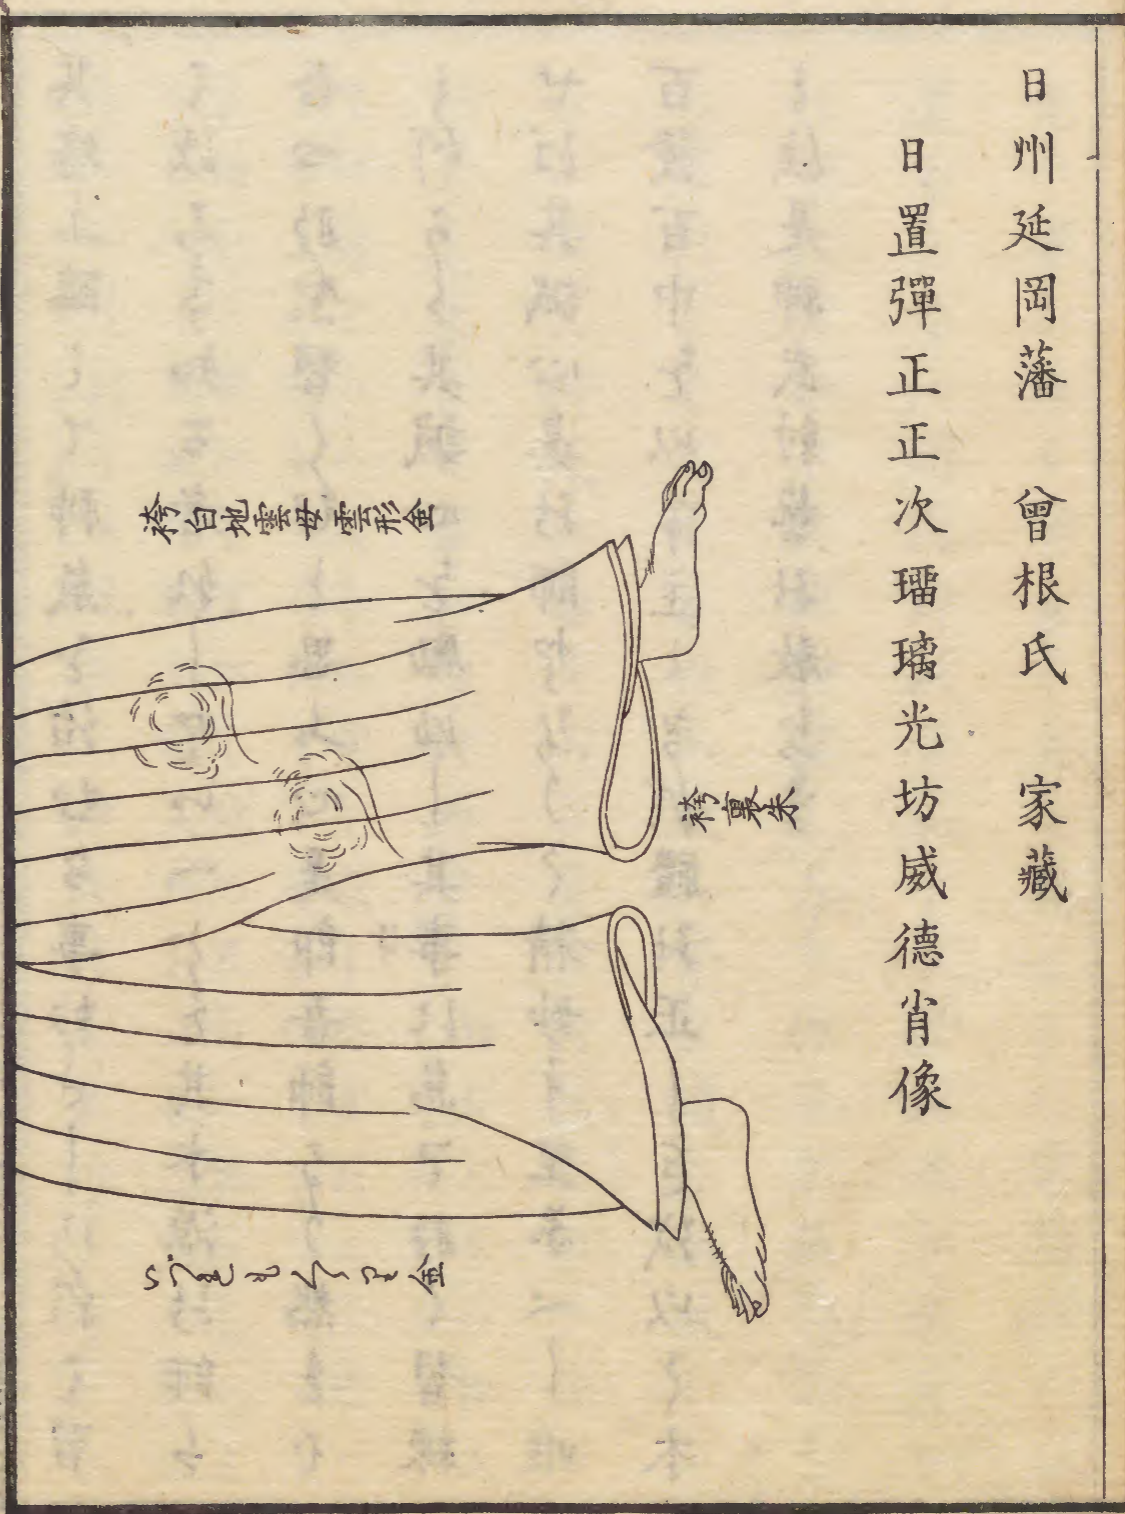 日州延岡藩　曾根氏　家藏
日置彈正正次瑠璃光坊威德肖像
袴白地雲母雲形金
袴裏朱
金